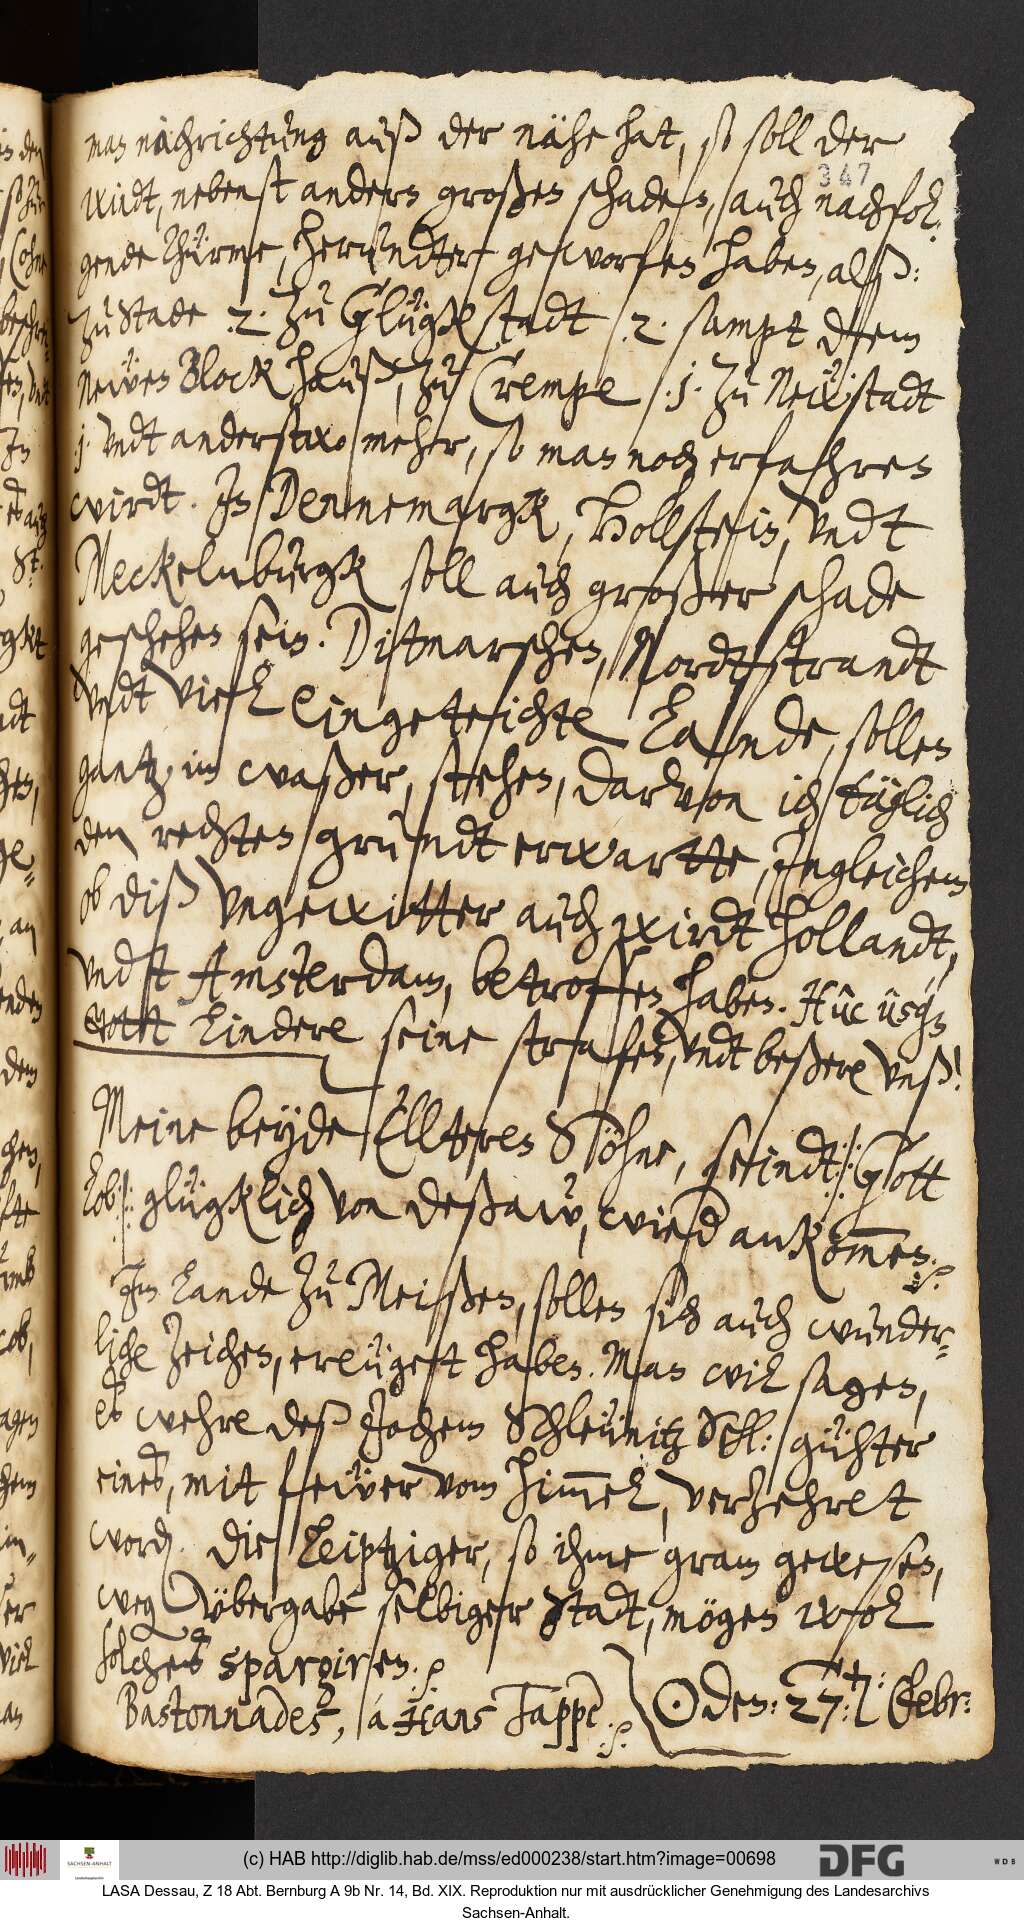 man nachrichtung auß der nähe hat, so soll der
347
windt, nebenst andern großen schaden, auch nachfol¦
gende Thürme, herundter geworfen haben, alß:
zu Stade .2. zu Glügkstadt .2. sampt dem
Neẅen Blockhauß, zu Crempe .1. zu Neẅstadt
.1. vndt anderstwo meher, so man noch erfahren
wirdt. In Dennemargk, Hollstein, vndt
Meckelnburgk soll auch großer schade
geschehen sein. Ditmarschen, Nordtstrandt
vndt viel eingeteichte Lande, sollen
gantz im waßer, stehen, darvon ich täglich
den rechten grundt erwartte, Ingleichem
ob diß vngewitter auch wirdt Hollandt,
vndt Amsterdam, betroffen haben.
Gott lindere seine strafen, vndt beßere vnß!
Meine beyde Elltern Söhne, seindt /: Gott
lob :/ glügklich von deßaw, wied ankommen.
Im Lande zu Meißen, sollen sich auch wunder-
liche zeichen, ereüget haben. Man will sagen,
es wehre deß Jochem Schleünitz Sehl: gühter
eines, mit feẅer vom himmel, verzehret
word. Die Leiptziger, so ihme gram gewesen,
weg vbergabe selbiger Stadt, mögen wol
solches spargiren.
Bastonnades, a Hans Tappe.
⊙ den: 27. Febr:
(c) HAB http://diglib.hab.de/mss/ed000238/start.htm?image=00698
DFG
WDB
SACHSEN-ANHALT
LASA Dessau, Z 18 Abt. Bernburg A 9b Nr. 14, Bd. XIX. Reproduktion nur mit ausdrücklicher Genehmigung des Landesarchivs
Sachsen-Anhalt.